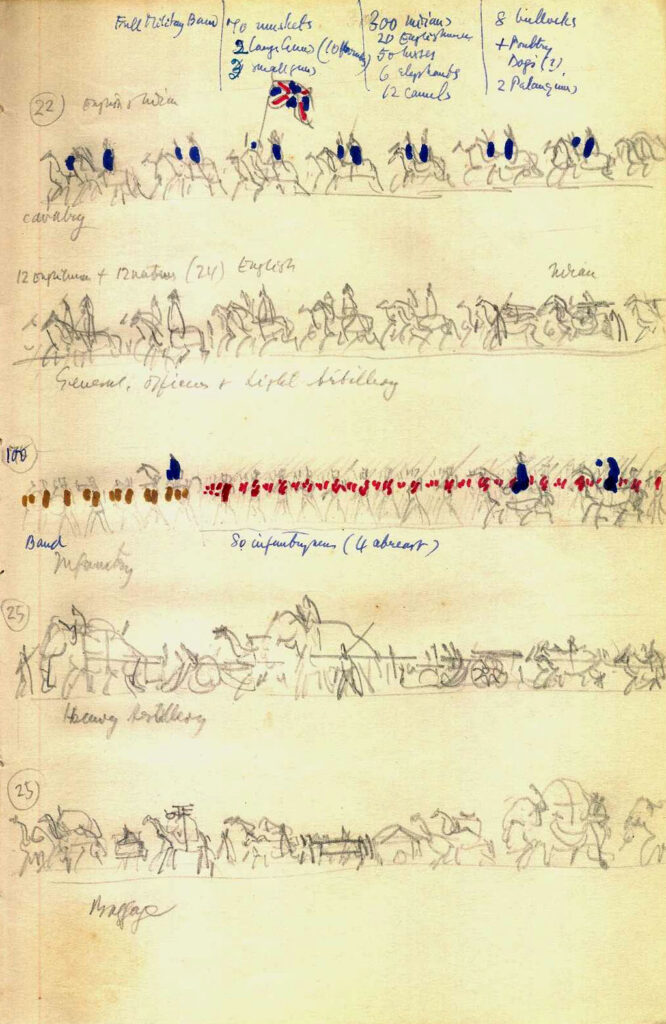 Full Military Band
70 muskets
2 Large Guns (10 Horses)
2 small guns
300 Indians
20 Englishmen
50 horses
6 elephants
12 camels
8 bullocks
+ Poultry
Dogs (?)
2 Palanquins
22 English + Indian
Cavalry
12 Englishmen + 12 natives (24) English
Indian
General, Officers + Light Artillery
100
Band
80 infantrymen (4 abreast)
Infantry
25
Heavy Artillery
25
Baggage